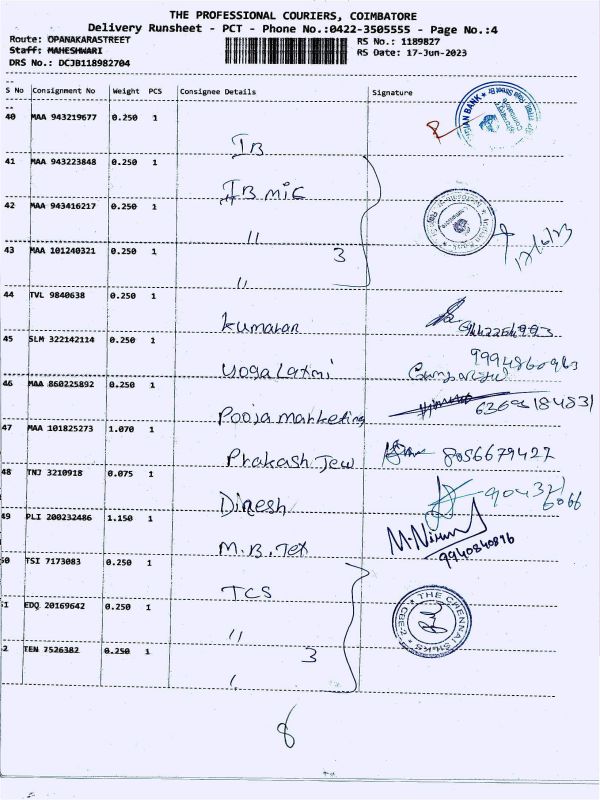 THE PROFESSIONAL COURIERS, COIMBATORE
Delivery Runsheet - PCT - Phone No.:0422-3505555 - Page No.:4
Route: OPANAKARASTREET
RS No.: 1189827
Staff: MAHESHWARI
RS Date: 17-Jun-2023
DRS No.: DCJB118982704
S No Consignment No Weight PCS Consignee Details Signature
40 MAA 943219677 0.250 1
IB
41 MAA 943223848 0.250 1
IB mic
42 MAA 943416217 0.250 1
"
3
43 MAA 101240321 0.250 1
"
44 TVL 9840638 0.250 1
kumaran
45 SLM 322142114 0.250 1
yogalaxmi
46 MAA 860225892 0.250 1
Pooja marketing 6369184831
47 MAA 101825273 1.070 1
Prakash Jew 8056679427
48 TNJ 3210918 0.075 1
Dinesh
49 PLI 200232486 1.150 1
M.B.Tex
M.Nirmal
9940840896
50 TSI 7173083 0.250 1
TCS
THE CHENNAI
CBE-2
51 EDQ 20169642 0.250 1
"
3
2 TEN 7526382 0.250 1
8